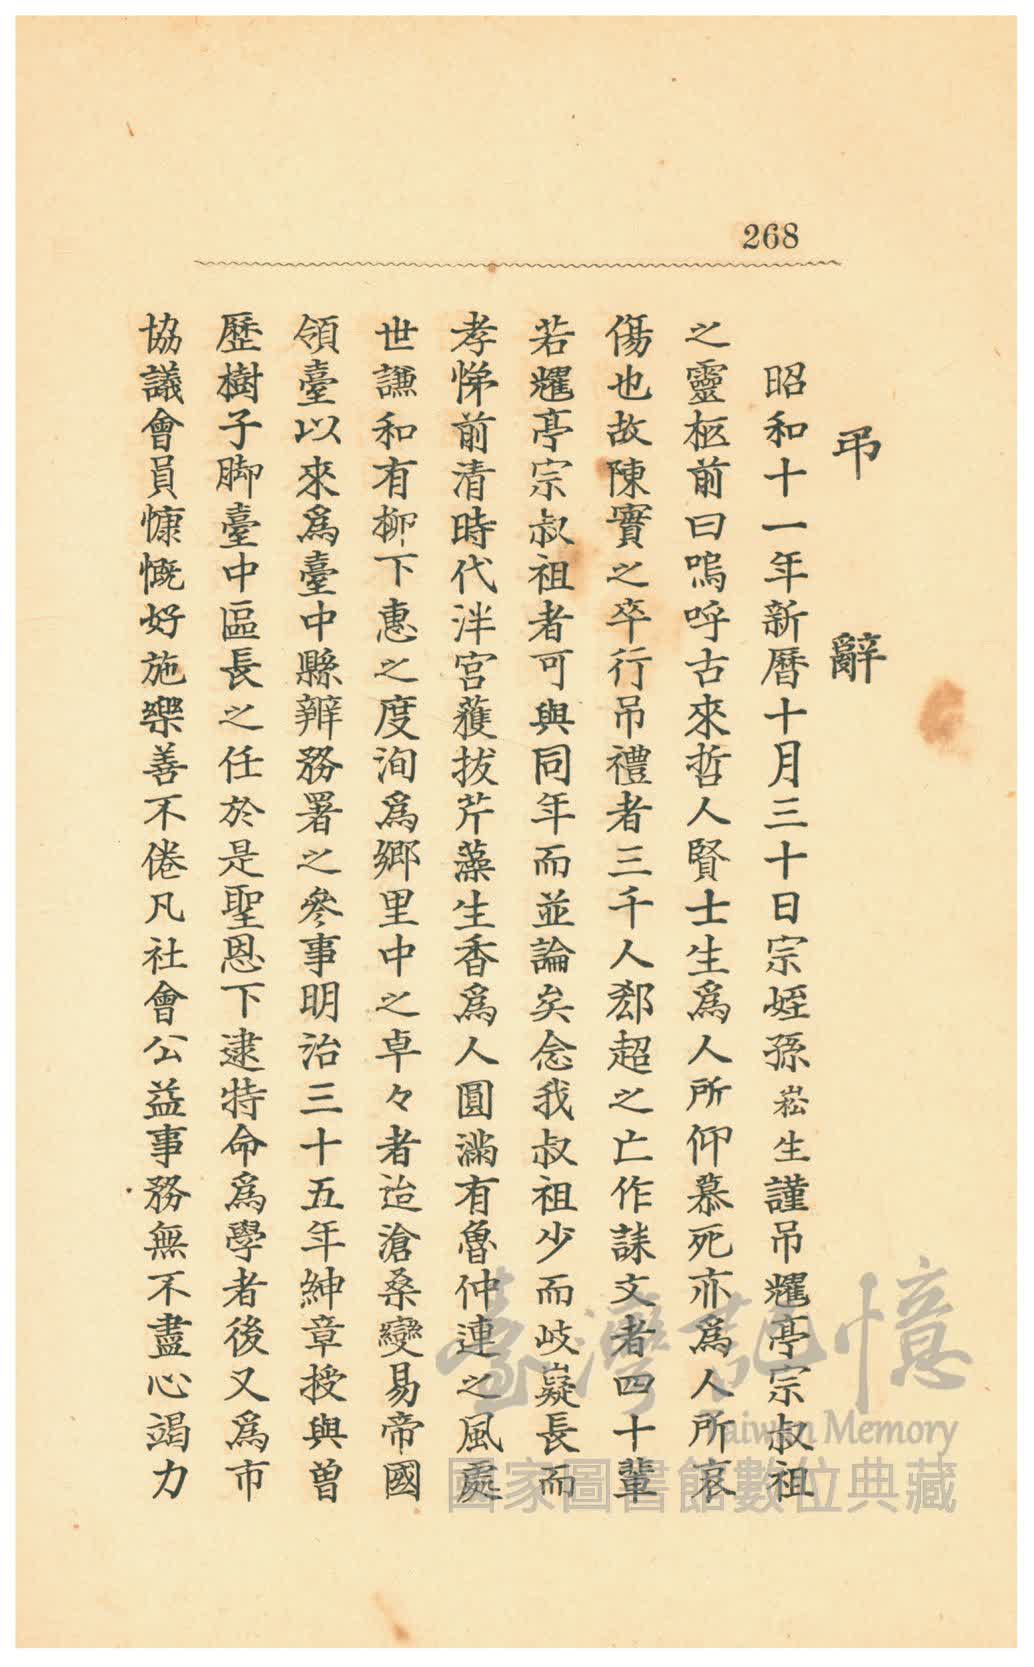 268
弔辭
昭和十一年新曆十月三十日宗姪孫崧生謹吊耀亭宗叔祖
之靈柩前曰嗚呼古來哲人賢士生爲人所仰慕死亦爲人所哀
傷也故陳實之卒行吊禮者三千人郄超之亡作誄文者四十輩
若耀亭宗叔祖者可與同年而並論矣念我叔祖少而岐嶷長而
孝悌前清時代泮宮蒦拔芹藻生香爲人圓滿有魯仲連之風處
世謙和有柳下惠之度洵爲鄉里中之卓々者迨滄桑變易帝國
領臺以來爲臺中縣辦務署之參事明治三十五年紳章授與曾
歷樹子脚臺中區長之任於是聖恩下逮特命爲學者後又爲市
協議會員慷慨好施樂善不倦凡社會公益事務無不盡心竭力
臺灣記憶
Taiwan Memory
國家圖書館數位典藏